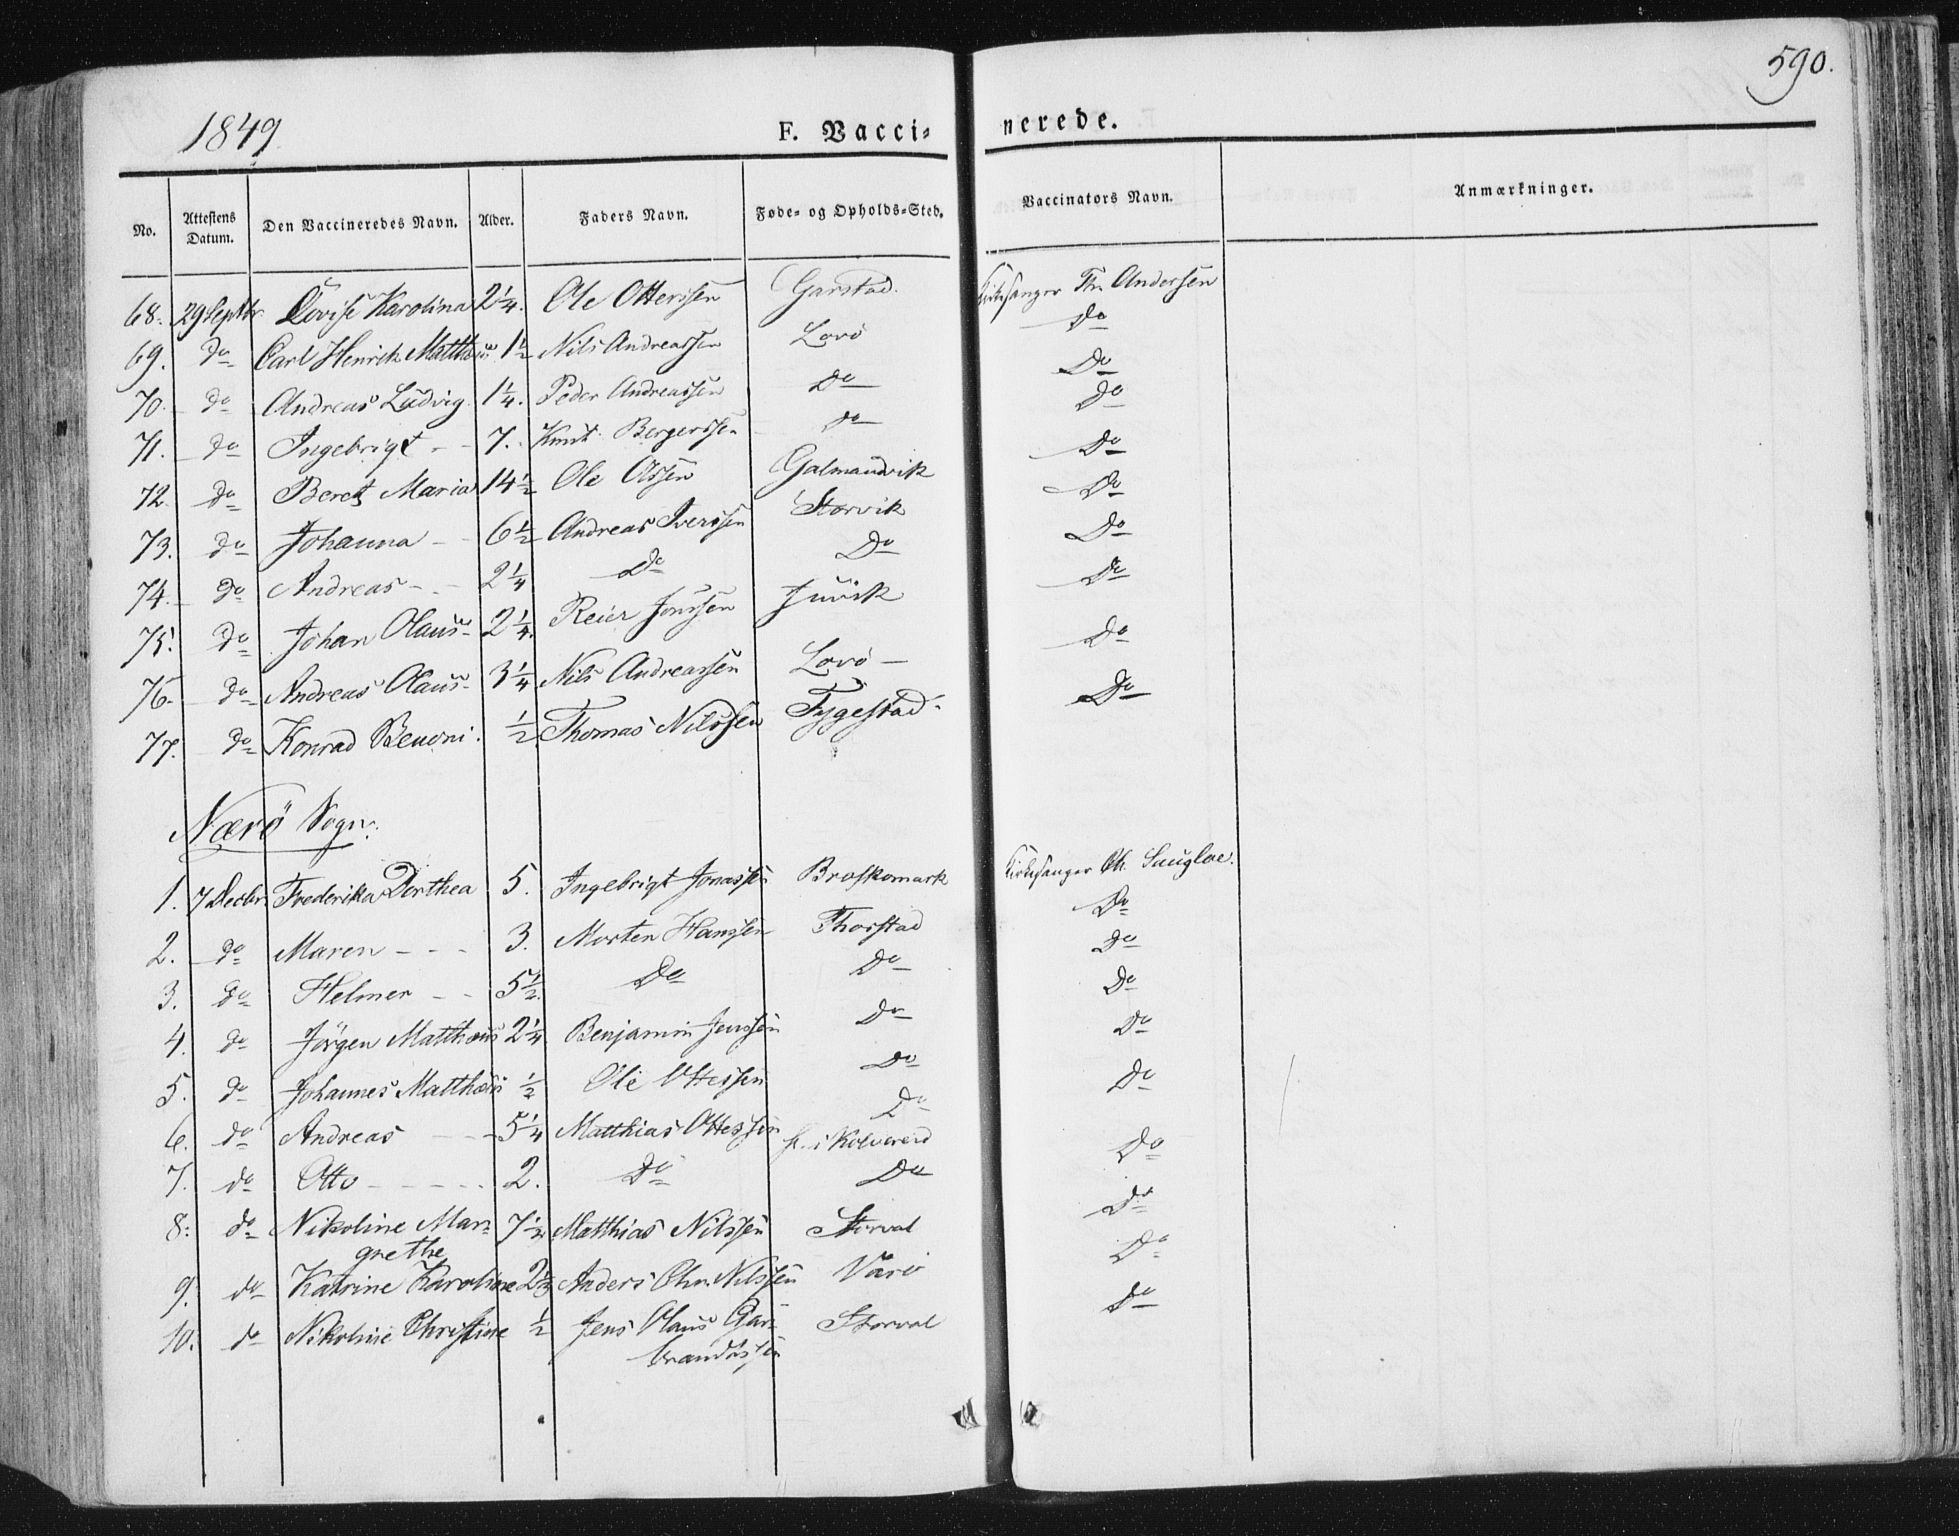 590.
1849
F. Vaccinerede.
No. Attestens Datum. Den Vaccineredes Navn. Alder. Faders Navn. Føde- og Opholds-Sted. Vaccinators Navn. Anmærkninger.
68. 29 Septbr Lovise Karolina 2 1/4. Ole Ottersen Garstad. Kirkesanger Andersen
69. do Carl Henrich Matthæus 1 1/2 Nils Andreassen Lovö Do
70. do Andreas Ludvig 1 1/4. Peder Andreassen Do Do
71. do Ingebrigt 7. Knut Bergerssen do Do
72. do Beret Maria 14 1/2 Ole Olsen Galmandvik Do
73. do Johanna 6 1/2 Andreas Iverssen Storvik Do
74. do Andreas 2 1/4 Do Do Do
75. do Johan Olaus 2 1/4. Reier Jonssen Juvik Do
76. do Andreas Olaus 3 1/4 Nils Andreassen Lovö Do
77. do Konrad Benoni. 1/2 Thomas Nilssen Tygestad Do
Nærö Sogn:
1. 7 Decbr Frederika Dorthea 5. Ingebrigt Jonassen Broskomark Kirkesanger Ch. Saugloe.
2. do Maren 3. Morten Hanssen Thorstad Do
3. do Helmer 5 1/2. Do Do Do
4. do Jörgen Matthæus 2 1/4 Benjamin Jenssen Do Do
5. do Johannes Matthæus 1/2 Ole Ottessen Do Do
6. do Andreas 5 1/4 Matthias Ottessen Do Do
f. i Kolvereid
7. do Otto 2. Do Do Do
8. do Nikoline Mar- 7 1/2 Matthias Nilssen Storval Do
grethe
9. do Katrine Karoline Anders Chr. Nilssen Värö Do
10. do Nikoline Christine 1/2 Jens Olaus Gar- Storval Do
brandtssen